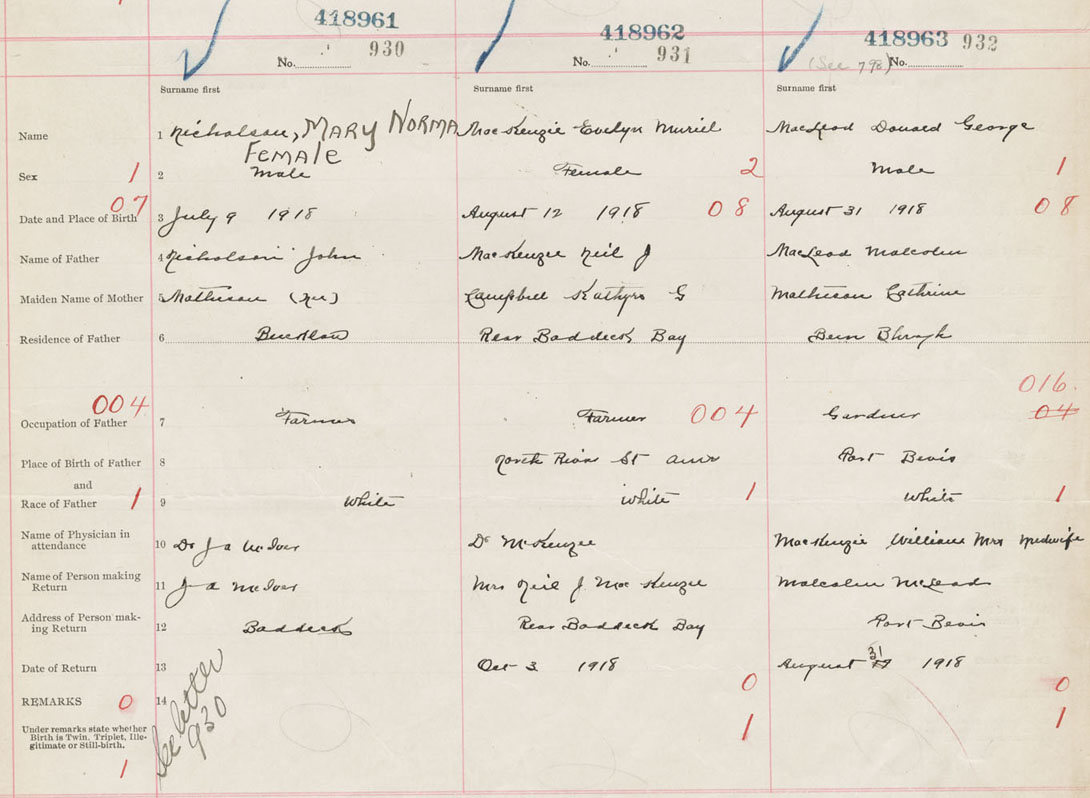 418961 418962 418963
No. 930 No. 931 (See 798) No. 932
Surname first Surname first Surname first
Name 1 Nicholson, MARY NORMA MacKenzie Evelyn Muriel MacLeod Donald George
FEMALE
Sex 1 2 Male Female 2 Male 1
07 08 08
Date and Place of Birth 3 July 9 1918 August 12 1918 August 31 1918
Name of Father 4 Nicholson John MacKenzie Neil J MacLeod Malcolm
Maiden Name of Mother 5 Matheson (Nee) Campbell Kathryn G Matheson Cathrine
Residence of Father 6 Bucklaw Rear Baddeck Bay Beinn Bhreagh
016.
004 004 04
Occupation of Father 7 Farmer Farmer Gardner
Place of Birth of Father 8 North River St Anns Port Bevis
and
Race of Father 1 9 White White 1 White 1
Name of Physician in
attendance 10 Dr J A McIver Dr McKenzie MacKenzie William Mrs Midwife
Name of Person making
Return 11 J A McIver Mrs Neil J MacKenzie Malcolm McLeod
Address of Person mak-
ing Return 12 Baddeck Rear Baddeck Bay Port Bevis
Date of Return 13 Oct 3 1918 August 31 1918
0 0
REMARKS 0 14 See letter
930
Under remarks state whether
Birth is Twin, Triplet, Ille-
gitimate or Still-birth.
1 1 1